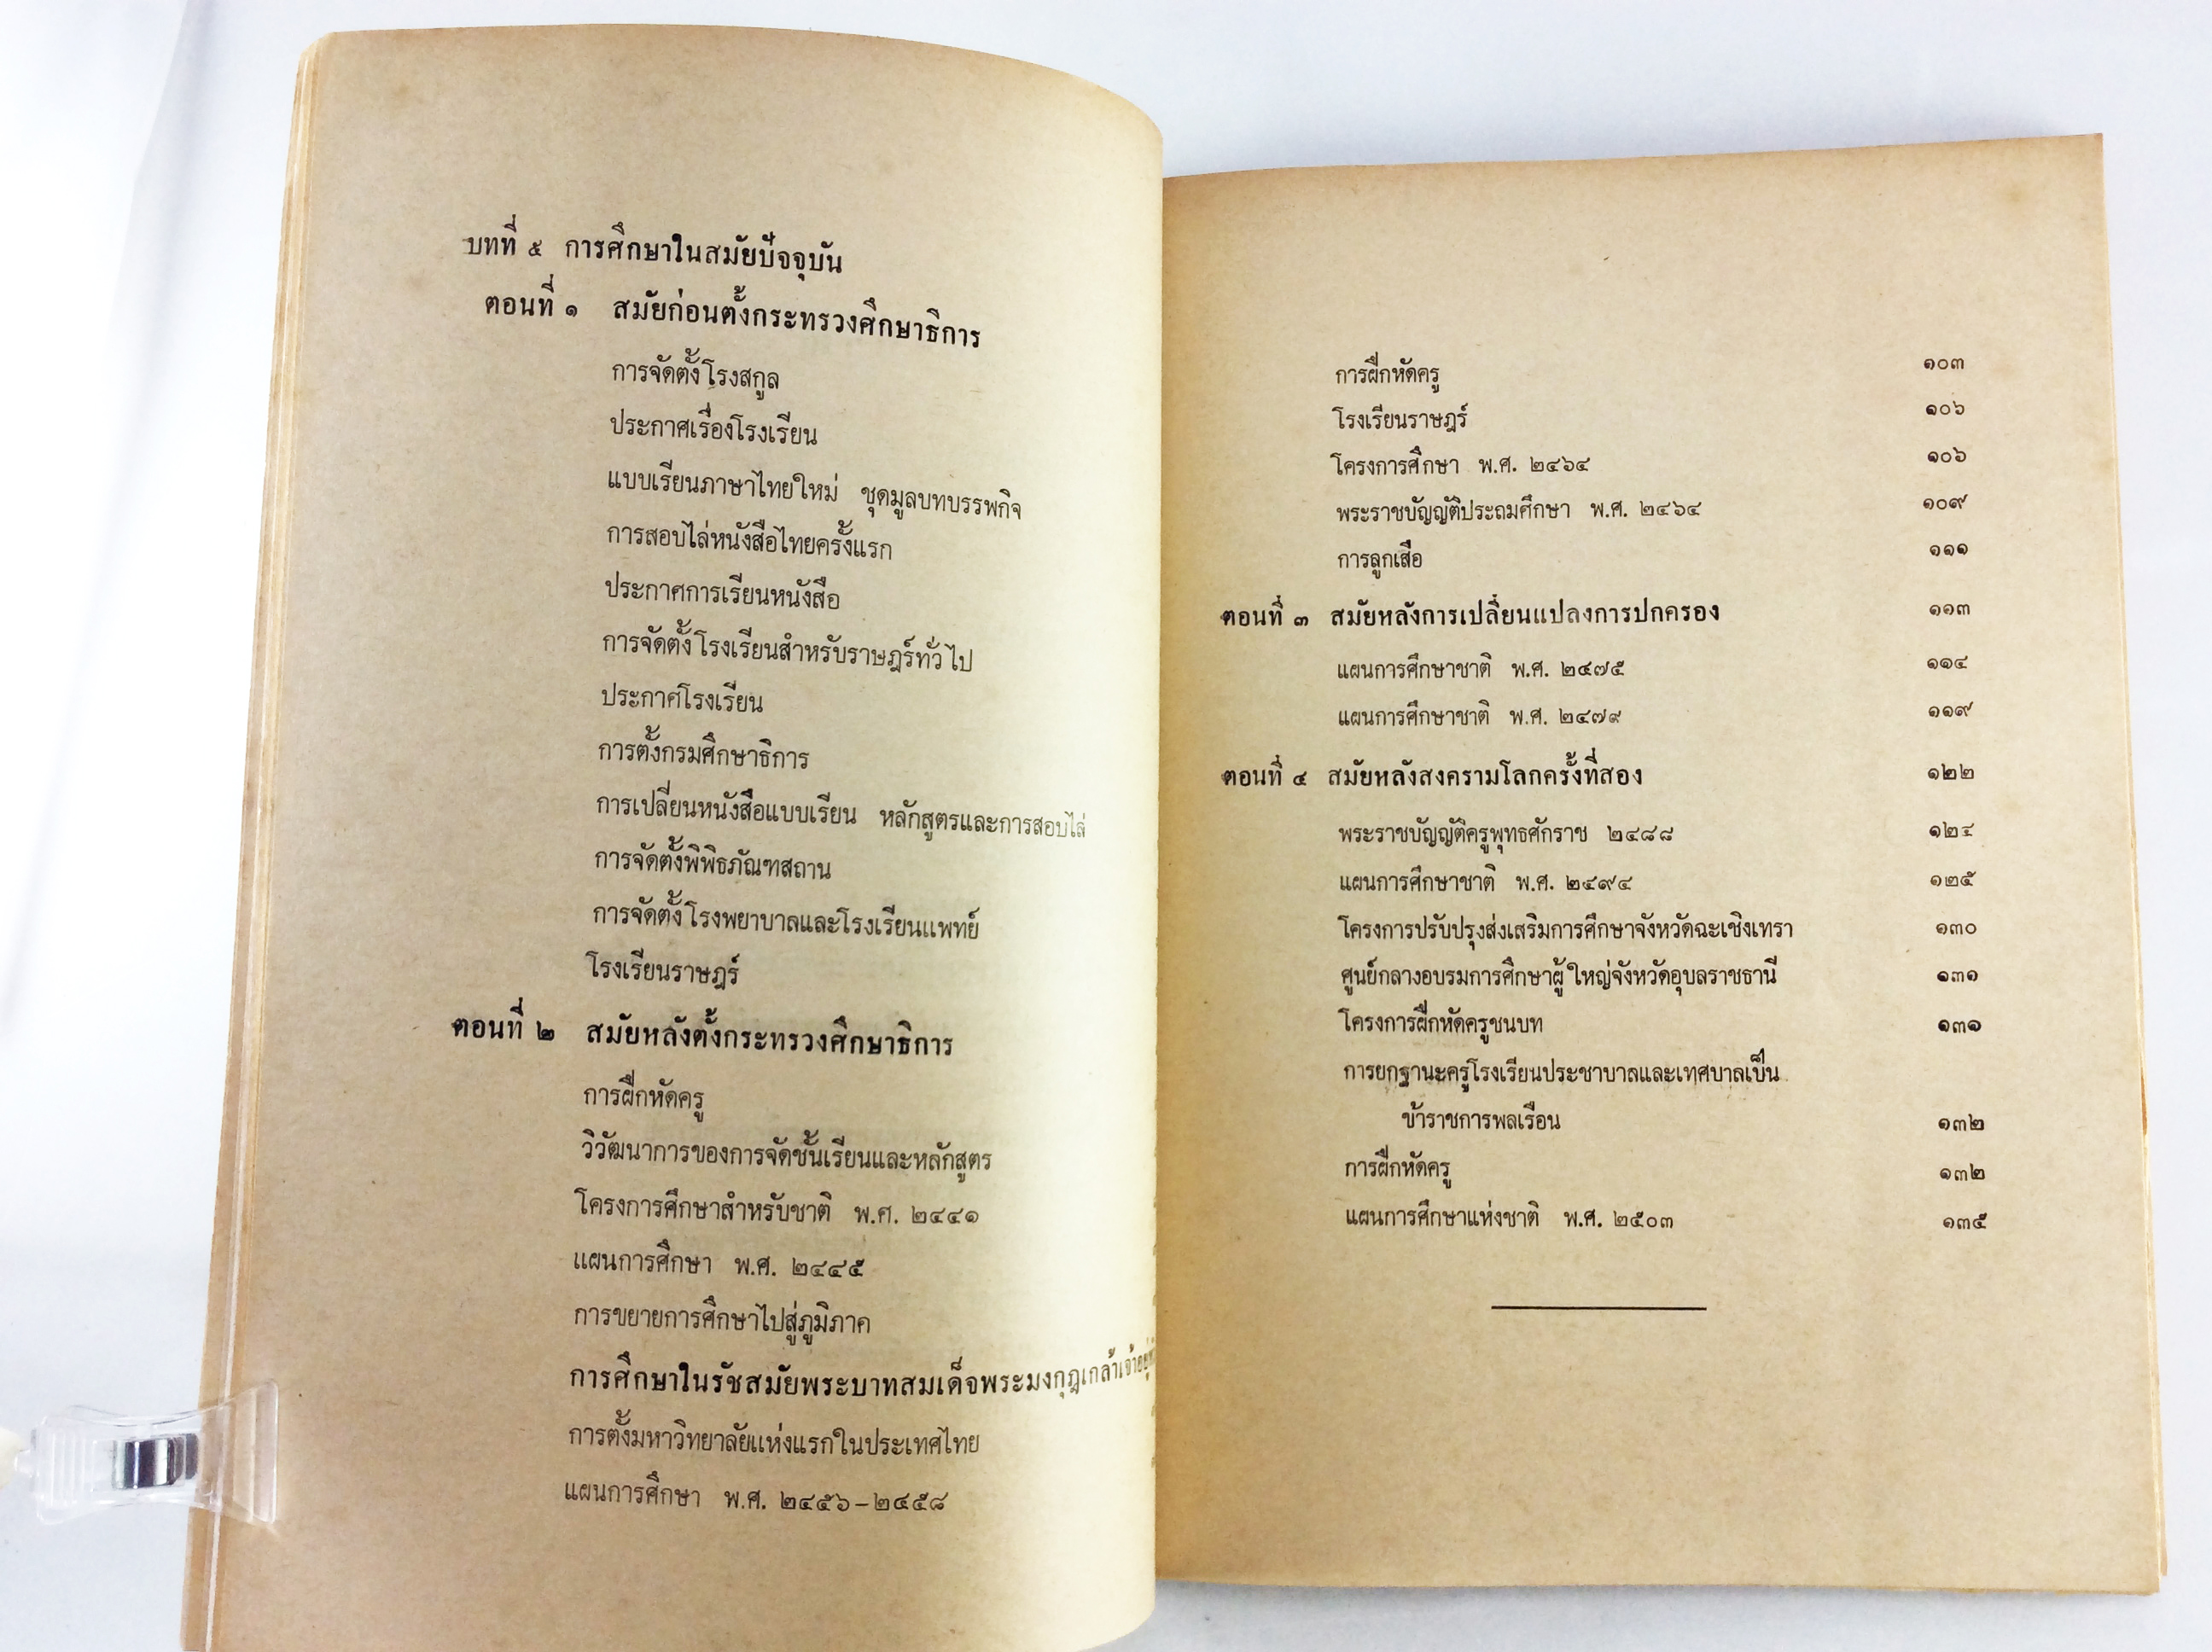 บทที่ ๕ การศึกษาในสมัยปัจจุบัน
ตอนที่ ๑ สมัยก่อนตั้งกระทรวงศึกษาธิการ
การจัดตั้งโรงสกูล
ประกาศเรื่องโรงเรียน
แบบเรียนภาษาไทยใหม่ ชุดมูลบทบรรพกิจ
การสอบไล่หนังสือไทยครั้งแรก
ประกาศการเรียนหนังสือ
การจัดตั้งโรงเรียนสำหรับราษฎร์ทั่วไป
ประกาศโรงเรียน
การตั้งกรมศึกษาธิการ
การเปลี่ยนหนังสือแบบเรียน หลักสูตรและการสอบไล่
การจัดตั้งพิพิธภัณฑสถาน
การจัดตั้งโรงพยาบาลและโรงเรียนแพทย์
โรงเรียนราษฎร์
ตอนที่ ๒ สมัยหลังตั้งกระทรวงศึกษาธิการ
การฝึกหัดครู
วิวัฒนาการของการจัดชั้นเรียนและหลักสูตร
โครงการศึกษาสำหรับชาติ พ.ศ. ๒๔๔๑
แผนการศึกษา พ.ศ. ๒๔๔๕
การขยายการศึกษาไปสู่ภูมิภาค
การศึกษาในรัชสมัยพระบาทสมเด็จพระมงกุฎเกล้าเจ้าอยู่
การตั้งมหาวิทยาลัยแห่งแรกในประเทศไทย
แผนการศึกษา พ.ศ. ๒๔๕๖-๒๔๕๘
การฝึกหัดครู ๑๐๓
โรงเรียนราษฎร์ ๑๐๖
โครงการศึกษา พ.ศ. ๒๔๖๔ ๑๐๖
พระราชบัญญัติประถมศึกษา พ.ศ. ๒๔๖๔ ๑๐๙
การลูกเสือ ๑๑๑
ตอนที่ ๓ สมัยหลังการเปลี่ยนแปลงการปกครอง ๑๑๓
แผนการศึกษาชาติ พ.ศ. ๒๔๗๕ ๑๑๔
แผนการศึกษาชาติ พ.ศ. ๒๔๗๙ ๑๑๙
ตอนที่ ๔ สมัยหลังสงครามโลกครั้งที่สอง ๑๒๒
พระราชบัญญัติครูพุทธศักราช ๒๔๘๘ ๑๒๔
แผนการศึกษาชาติ พ.ศ. ๒๔๙๔ ๑๒๕
โครงการปรับปรุงส่งเสริมการศึกษาจังหวัดฉะเชิงเทรา ๑๓๐
ศูนย์กลางอบรมการศึกษาผู้ใหญ่จังหวัดอุบลราชธานี ๑๓๑
โครงการฝึกหัดครูชนบท ๑๓๑
การยกฐานะครูโรงเรียนประชาบาลและเทศบาลเป็น
ข้าราชการพลเรือน ๑๓๒
การฝึกหัดครู ๑๓๒
แผนการศึกษาแห่งชาติ พ.ศ. ๒๕๐๓ ๑๓๕